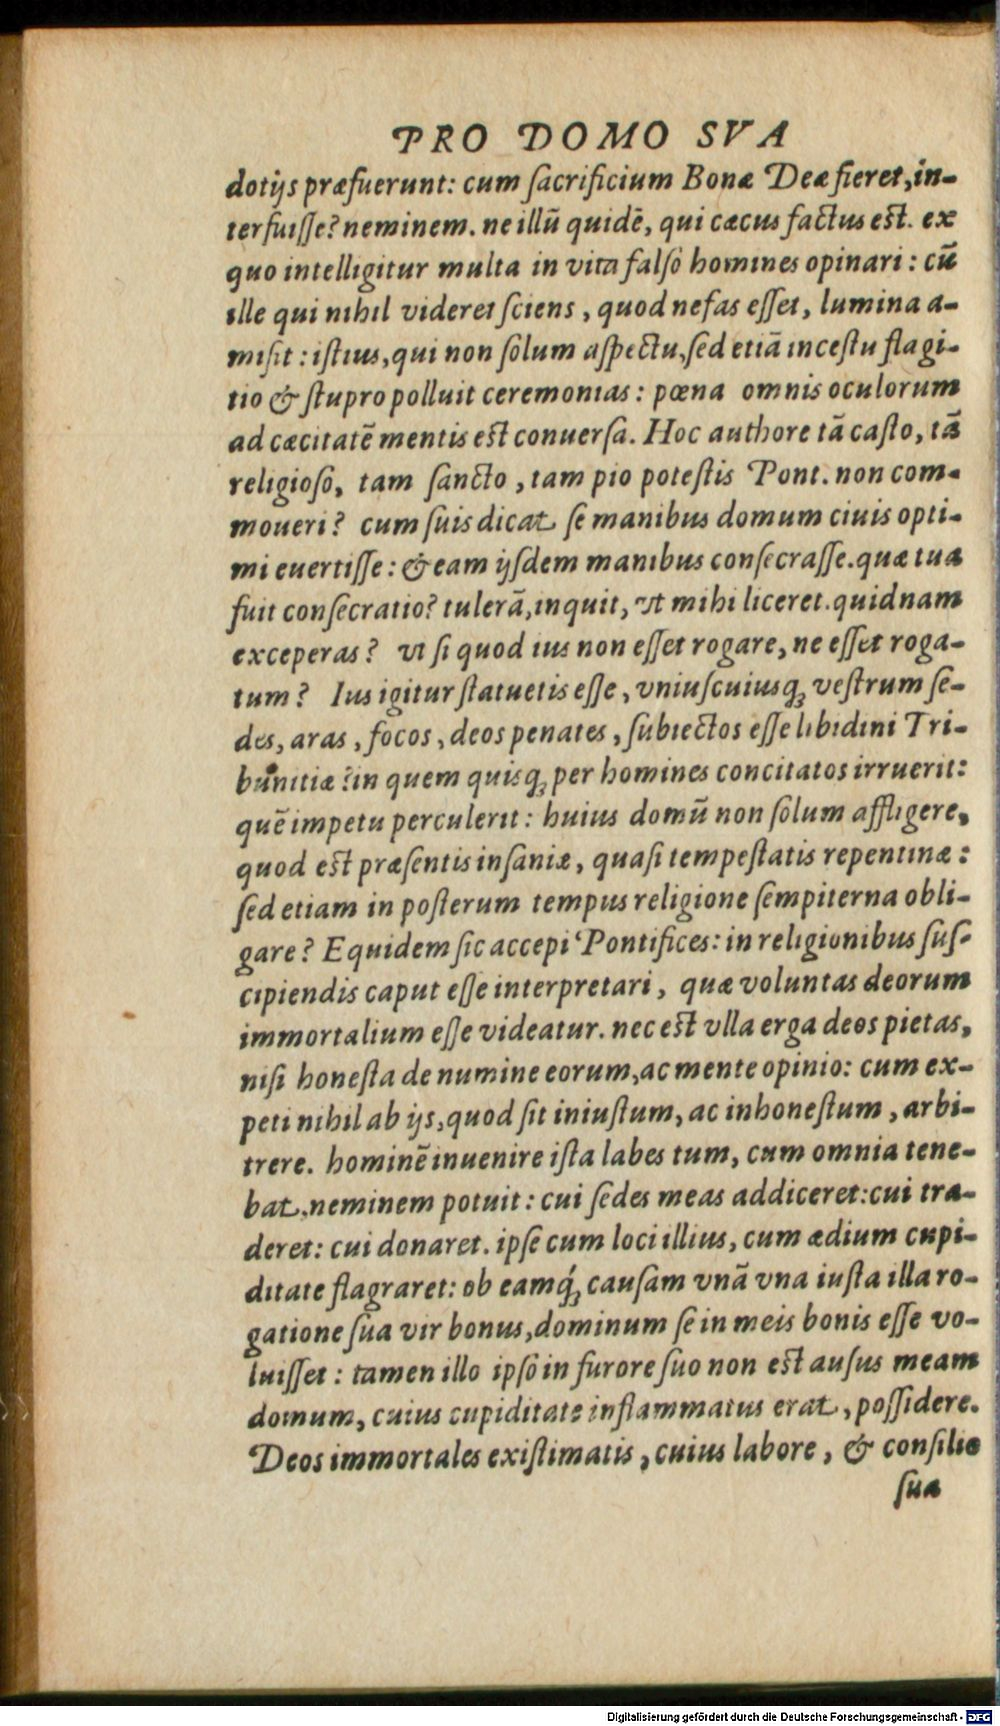 PRO DOMO SVA
dotijs præfuerunt: cum ſacrificium Bonæ Deæ fieret, in-
terfuiſſe? neminem. ne illū quidē, qui cæcus factus eſt. ex
quo intelligitur multa in vita falſò homines opinari: cū
ille qui nihil videret ſciens, quod nefas eſſet, lumina a-
miſit: iſtius, qui non ſolum aſpectu, ſed etiā inceſtu flagi-
tio & ſtupro polluit ceremonias: pœna omnis oculorum
ad cæcitatē mentis eſt conuerſa. Hoc authore tā caſto, tā
religioſo, tam ſancto, tam pio poteſtis Pont. non com-
moueri? cum ſuis dicat ſe manibus domum ciuis opti-
mi euertiſſe: & eam ijſdem manibus conſecraſſe. quæ tua
fuit conſecratio? tulerā, inquit, vt mihi liceret. quid nam
exceperas? vt ſi quod ius non eſſet rogare, ne eſſet roga-
tum? Ius igitur ſtatuetis eſſe, vniuſcuiusq; veſtrum ſe-
des, aras, focos, deos penates, ſubiectos eſſe libidini Tri-
bunitiæ? in quem quisq; per homines concitatos irruerit:
quē impetu perculerit: huius domū non ſolum affligere,
quod eſt præſentis inſaniæ, quaſi tempeſtatis repentinæ:
ſed etiam in poſterum tempus religione ſempiterna obli-
gare? Equidem ſic accepi Pontifices: in religionibus ſuſ-
cipiendis caput eſſe interpretari, quæ voluntas deorum
immortalium eſſe videatur. nec eſt vlla erga deos pietas,
niſi honeſta de numine eorum, ac mente opinio: cum ex-
peti nihil ab ijs, quod ſit iniuſtum, ac inhoneſtum, arbi-
trere. hominē inuenire iſta labes tum, cum omnia tene-
bat, neminem potuit: cui ſedes meas addiceret: cui tra-
deret: cui donaret. ipſe cum loci illius, cum ædium cupi-
ditate flagraret: ob eamq́; cauſam vnā vna iuſta illa ro-
gatione ſua vir bonus, dominum ſe in meis bonis eſſe vo-
luiſſet: tamen illo ipſo in furore ſuo non eſt auſus meam
domum, cuius cupiditate inflammatus erat, poſſidere.
Deos immortales exiſtimatis, cuius labore, & conſilio
ſua
Digitalisierung gefördert durch die Deutsche Forschungsgemeinschaft - DFG